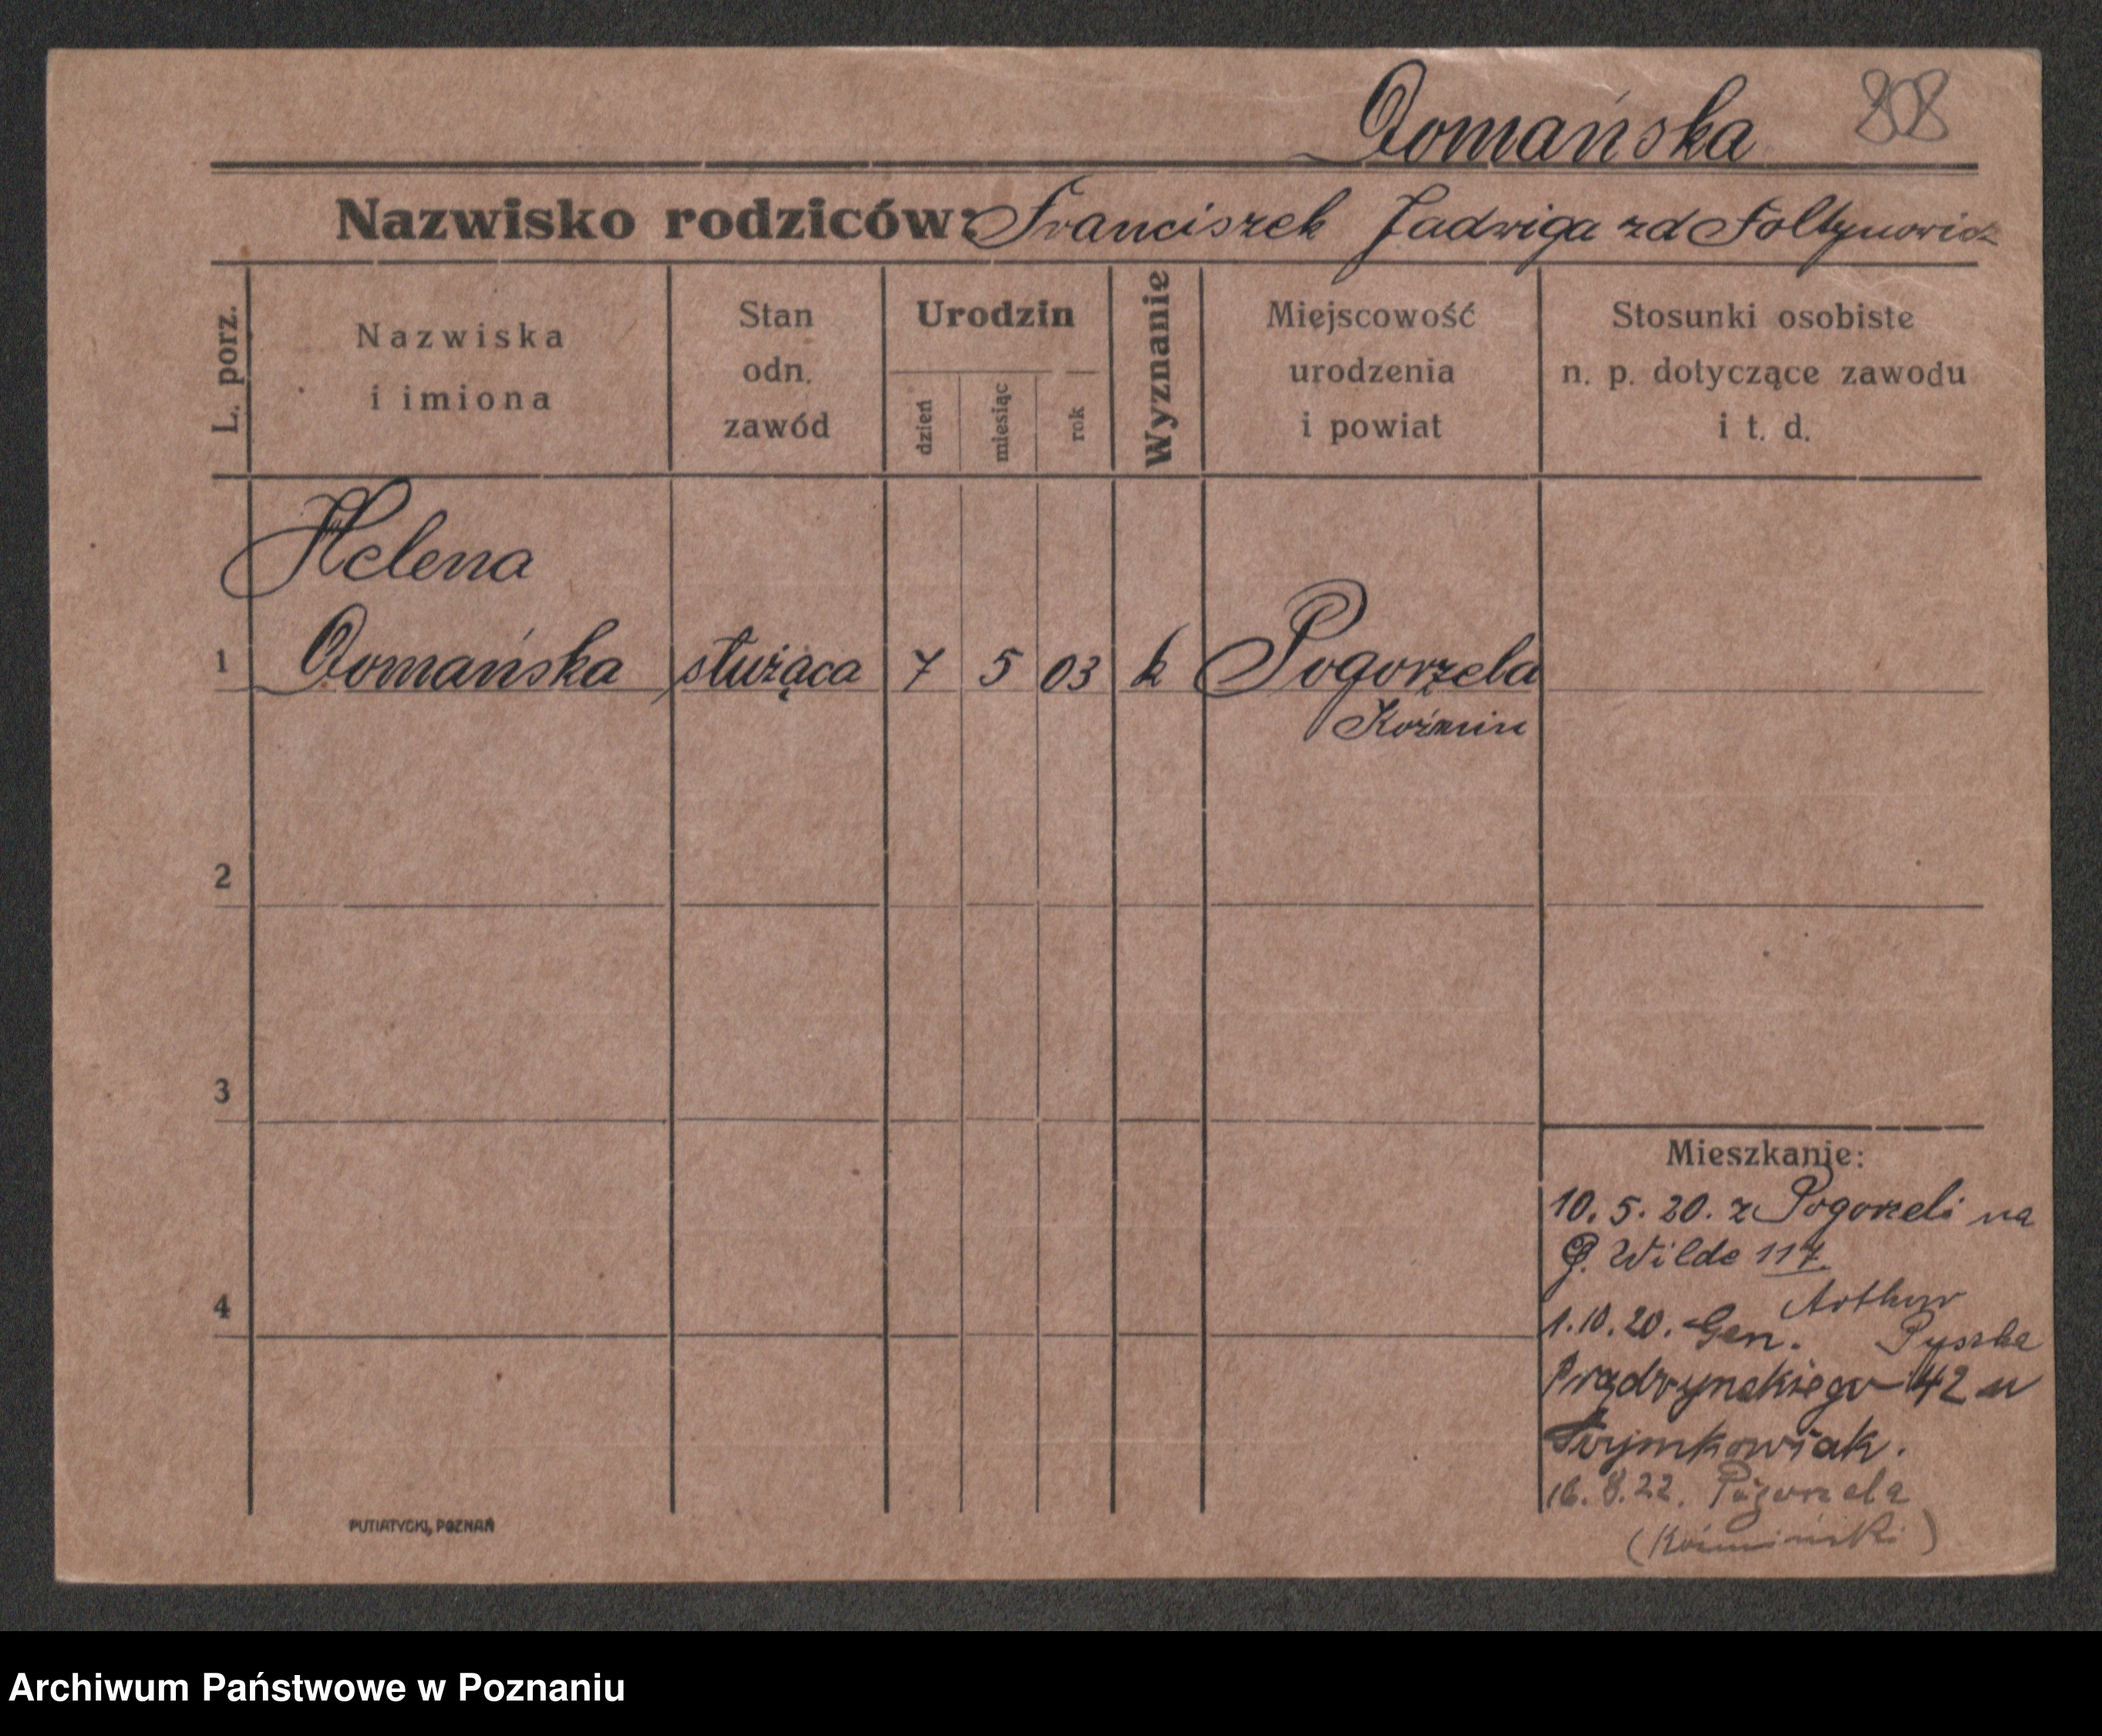 Domańska 808
Nazwisko rodziców: Franciszek Jadwiga zd Foltynowicz
L. porz.
Nazwiska
i imiona
Stan
odn.
zawód
Urodzin
dzień
miesiąc
rok
Wyznanie
Miejscowość
urodzenia
i powiat
Stosunki osobiste
n. p. dotyczące zawodu
i t. d.
Helena
1 Domańska służąca 7 5 03 k Pogorzela
Koźmin
2
3
4
Mieszkanie:
10. 5. 20. z Pogorzeli na
G. Wilde 117.
Arthur
1. 10. 20. Gen. Pyszka
Prądzynskiego 42 u
Szymkowiak.
16. 8. 22. Pogorzela
(Koźmiński)
PUTIATYCKI, POZNAŃ
Archiwum Państwowe w Poznaniu